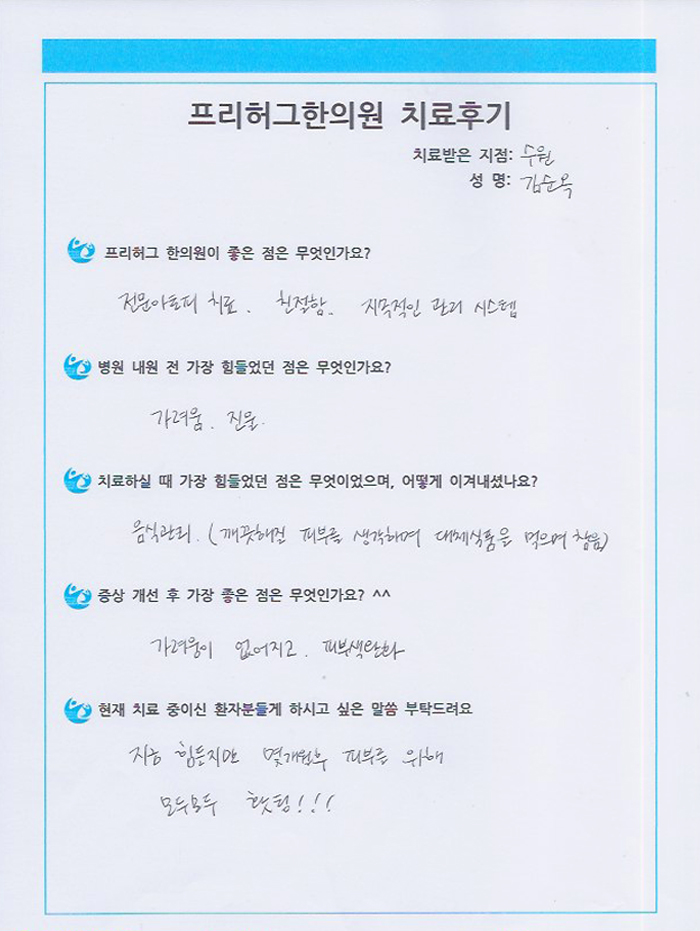 프리허그한의원 치료후기
치료받은 지점: 수원
성 명: 김순옥
프리허그 한의원이 좋은 점은 무엇인가요?
전문아토피 치료. 친절함. 지속적인 관리 시스템
병원 내원 전 가장 힘들었던 점은 무엇인가요?
가려움. 진물.
치료하실 때 가장 힘들었던 점은 무엇이었으며, 어떻게 이겨내셨나요?
음식관리. (깨끗해질 피부를 생각하며 대체식품을 먹으며 참음)
증상 개선 후 가장 좋은 점은 무엇인가요? ^^
가려움이 없어지고. 피부색변화
현재 치료 중이신 환자분들게 하시고 싶은 말씀 부탁드려요
지금 힘든지만 몇개월후 피부를 위해
모두모두 홧팅!!!